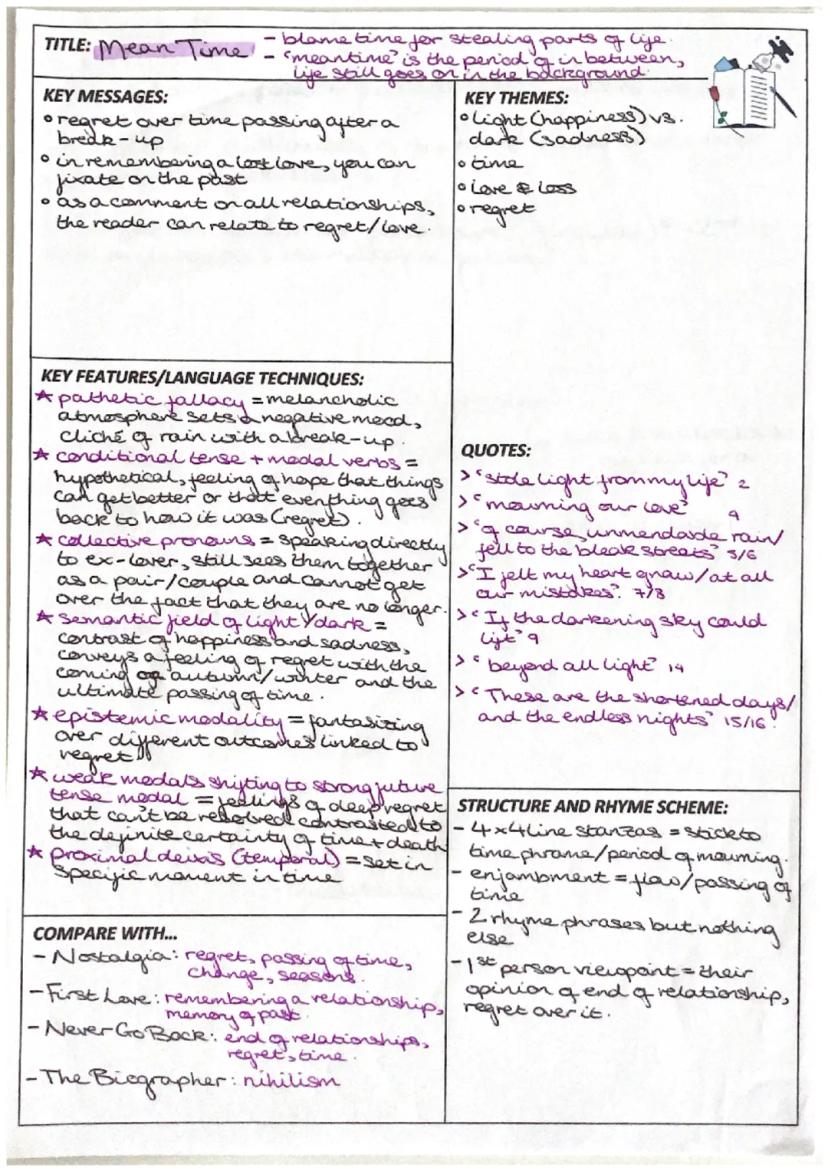 TITLE: Mean Time
- blame time for stealing parts of life.
- 'meantime' is the period of in between,
life still goes on in the background.
KEY MESSAGES:
• regret over time passing after a
break-up
• in remembering a lost love, you can
fixate on the past
• as a comment on all relationships,
the reader can relate to regret/love.
KEY THEMES:
• light (happiness) vs.
dark (sadness)
• time
• love & loss
• regret
KEY FEATURES/LANGUAGE TECHNIQUES:
★ pathetic fallacy = melancholic
atmosphere sets a negative mood,
cliché of rain with a break-up.
★ conditional tense + modal verbs =
hypothetical, feeling of hope that things
can get better or that everything goes
back to how it was (regret).
★ collective pronouns = speaking directly
to ex-lover, still sees them together
as a pair/couple and cannot get
over the fact that they are no longer.
★ semantic field of light/dark =
contrast of happiness and sadness,
conveys a feeling of regret with the
coming of autumn/winter and the
ultimate passing of time.
★ epistemic modality = fantasizing
over different outcomes linked to
regret
★ weak modals shifting to strong future
tense modal = feelings of deep regret
that can't be resolved contrasted to
the definite certainty of time + death
★ proximal deixis (temporal) = set in
specific moment in time
QUOTES:
> "stole light from my life" 2
> "mourning our love" 4
> "of course, unmendable rain/
fell to the bleak streets" 5/6
> "I felt my heart gnaw/at all
our mistakes" 7/8
> "If the darkening sky could
lift" 9
> "beyond all light" 14
> "These are the shortened days/
and the endless nights" 15/16.
STRUCTURE AND RHYME SCHEME:
- 4 x 4 line stanzas = stick to
time phrame/period of mourning.
- enjambment = flow/passing of
time
- 2 rhyme phrases but nothing
else
- 1st person viewpoint = their
opinion of end of relationship,
regret over it.
COMPARE WITH...
- Nostalgia: regret, passing of time,
change, seasons.
- First Love: remembering a relationship,
memory of past.
- Never Go Back: end of relationships,
regret, time.
- The Biographer: nihilism